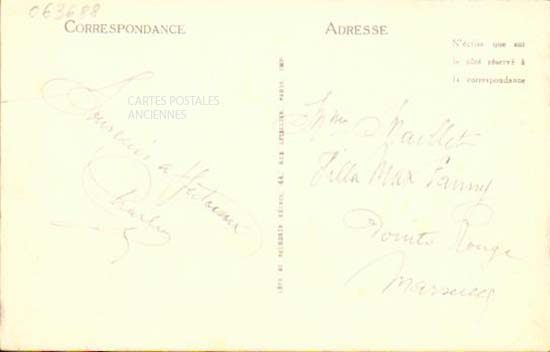 063688
CORRESPONDANCE
ADRESSE
N'écrire que sur
le côté réservé à
la correspondance
CARTES POSTALES
ANCIENNES
Souvenir affectueux
Charles
Mme Maillet
Villa Max Fanny
Pointe Rouge
Marseille